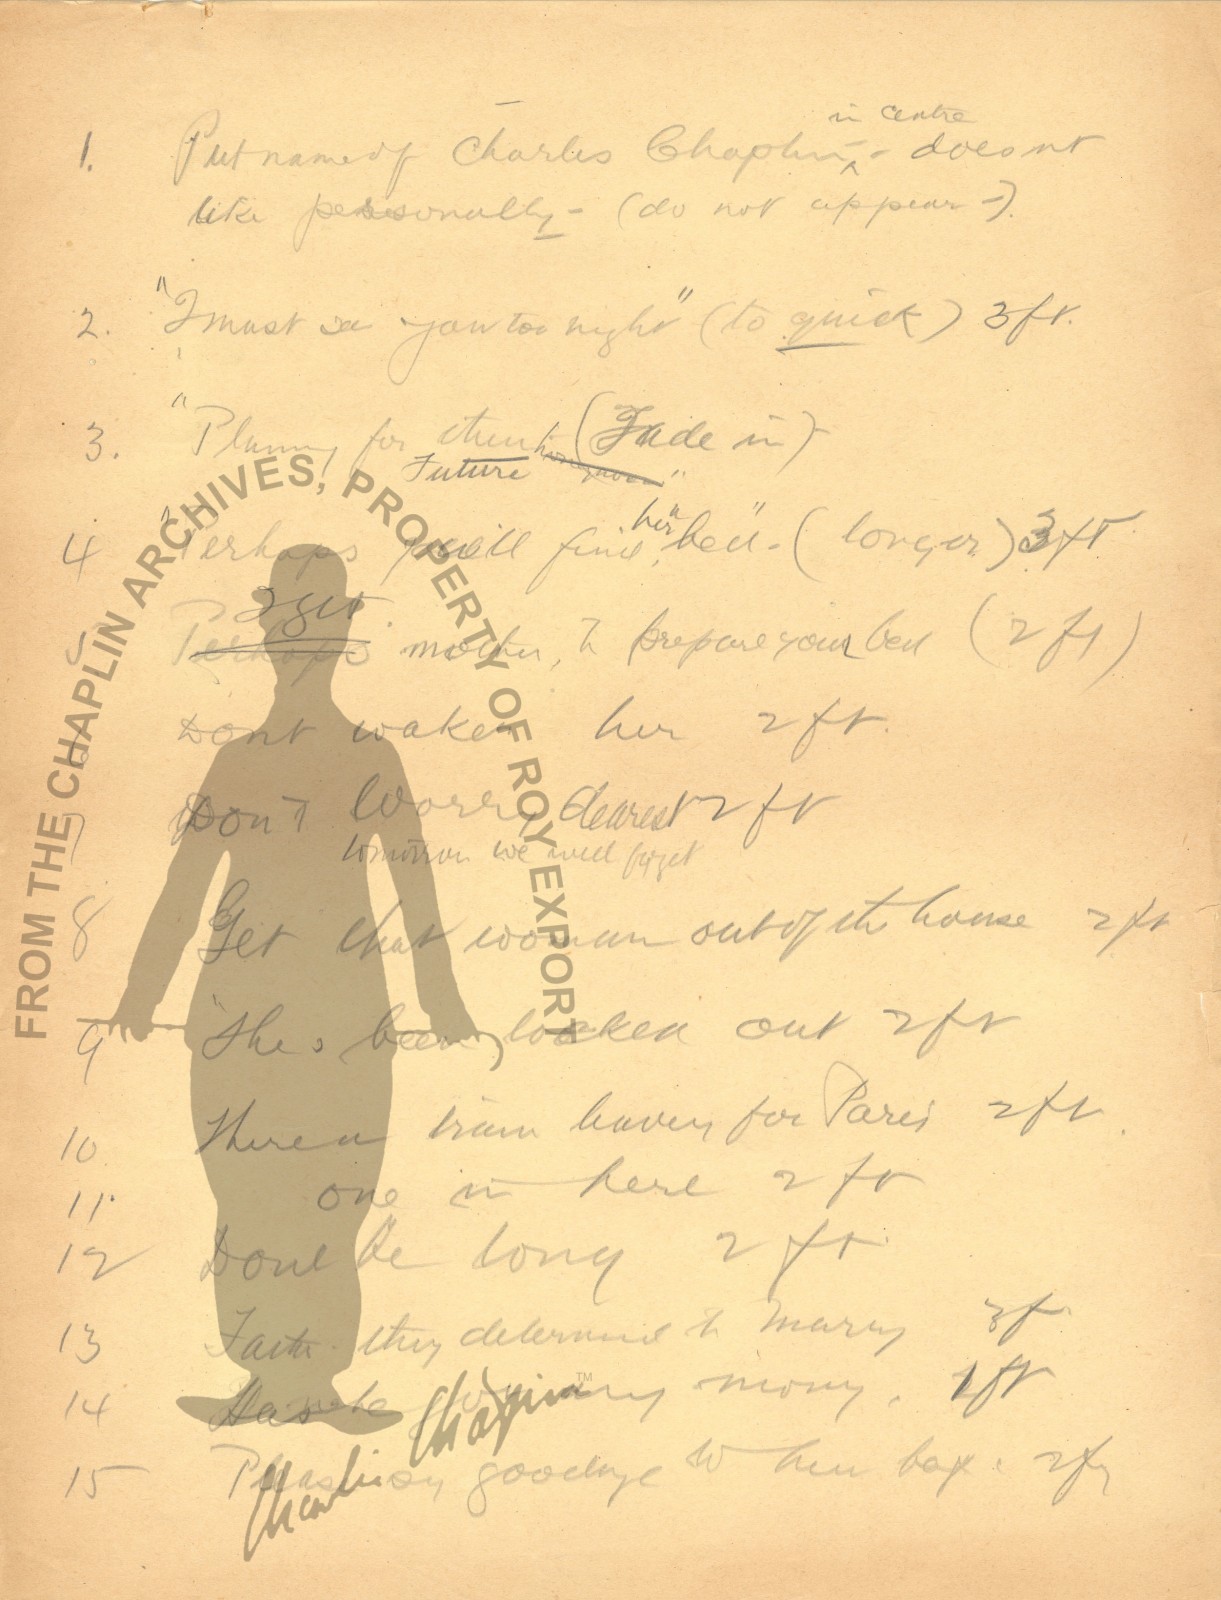 in centre
1. Put name of Charles Chaplin - does not
like personally - (do not appear -).
2. "I must see you too night" (to quick) 3 ft.
3. "Planning for their (Fade in)
Future
4 "Perhaps will find her bed" - (longer) 3 ft
5 2 get.
Perhaps mother, to prepare your bed (2 ft)
Dont waken her 2 ft.
7 Don't Worry dearest 2 ft
tomorrow we will forget
8 Get that woman out of the house 2 ft
9 "She's been locked out 2 ft
10 There a train leaving for Paris 2 ft.
11. one in here 2 ft
12 Dont be long 2 ft.
13 they determined to marry 3 f
14 Has he any mony. 1 ft
15 goodbye to him 2 f
FROM THE CHAPLIN ARCHIVES, PROPERTY OF ROY EXPORT
Charlie Chaplin TM